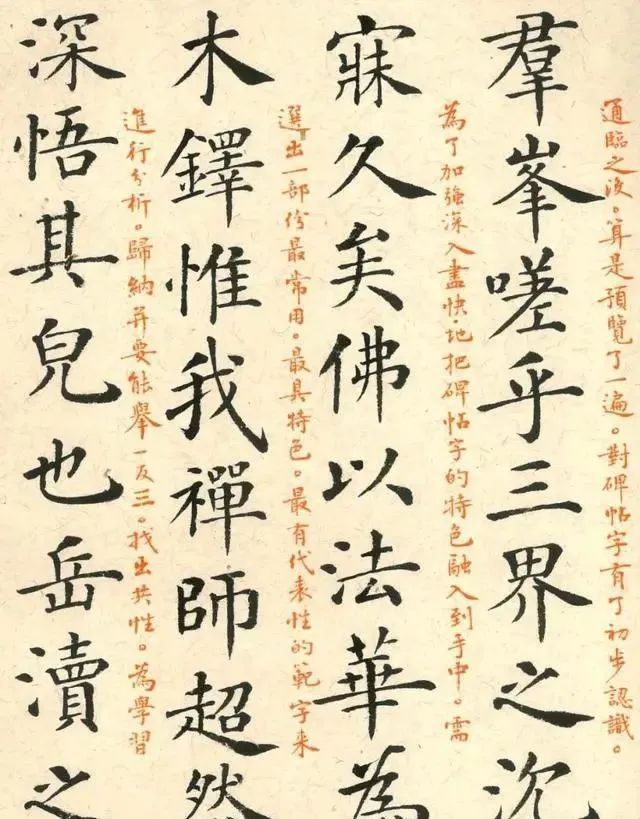 羣峯嗟乎三界之沉
寐久矣佛以法華為
木鐸惟我禪師超然
深悟其皃也岳瀆之
通臨之後。算是預覽了一遍。對碑帖字有了初步認識。
為了加強深入盡快地把碑帖字的特色融入到手中。需
選出一部份最常用。最具特色。最有代表性的範字来
進行分析。歸納并要能舉一反三。找出共性。為學習